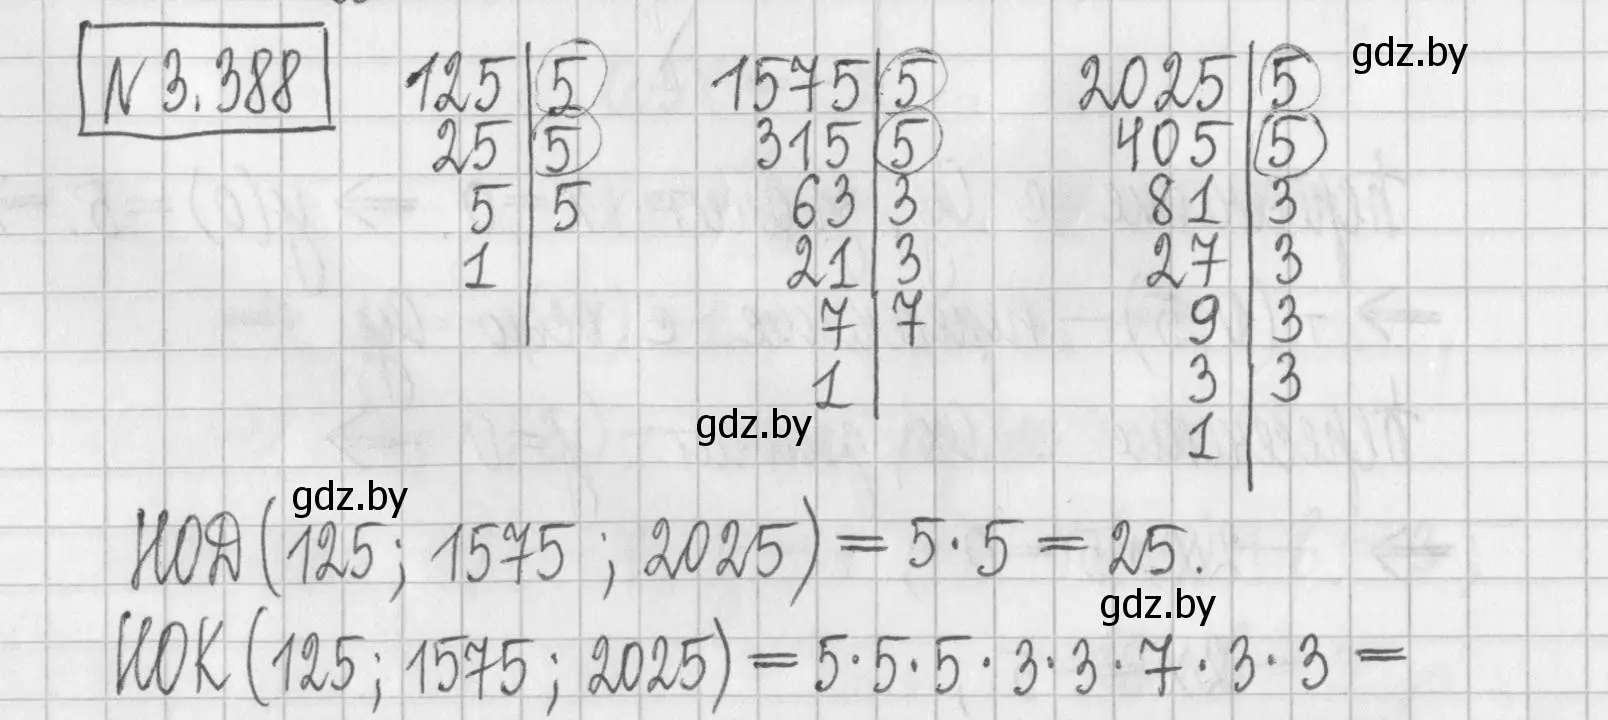 N 3.388
125 | 5 1575 | 5 2025 | 5 gdz.by
25 | 5 315 | 5 405 | 5
5 | 5 63 | 3 81 | 3
1 | 21 | 3 27 | 3
7 | 7 9 | 3
1 | 3 | 3
gdz.by 1 |
gdz.by
НОД (125; 1575; 2025) = 5·5 = 25.
gdz.by
НОК (125; 1575; 2025) = 5·5·5·3·3·7·3·3 =